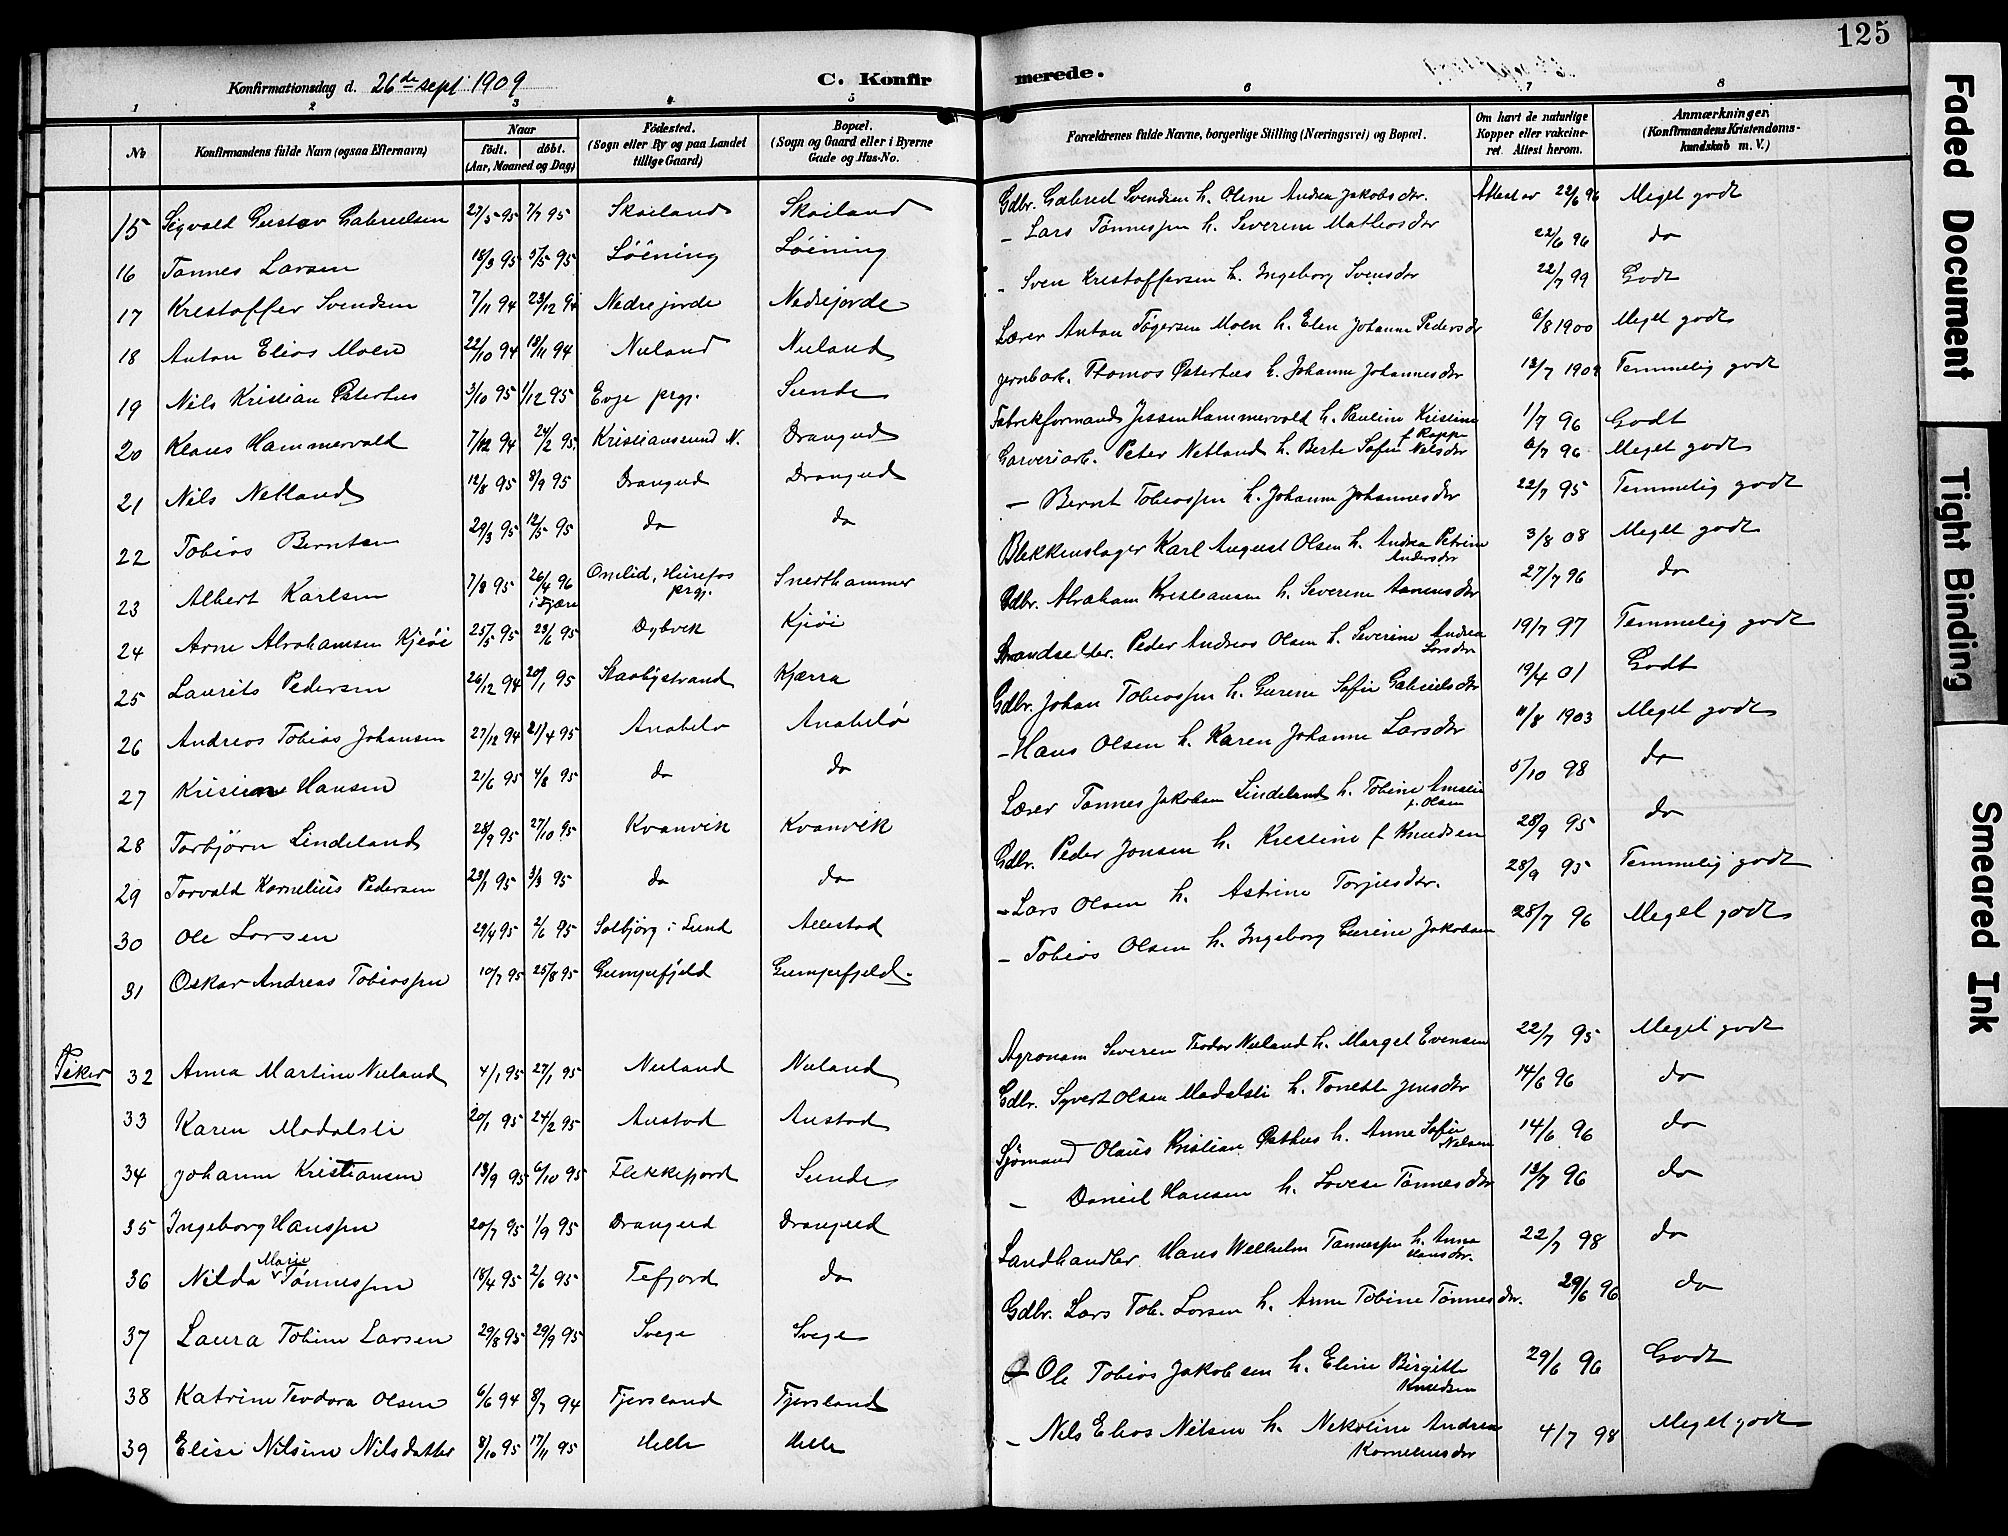 125
Konfirmationsdag d. 26de sept 1909
C. Konfirmerede.
1 2 3 4 5 6 7 8
No
Konfirmandens fulde Navn (ogsaa Efternavn)
Naar
födt. döbt.
(Aar, Maaned og Dag)
Födested.
(Sogn eller By og paa Landet tillige Gaard)
Bopæl.
(Sogn og Gaard eller i Byerne Gade og Hus-No.
Forældrenes fulde Navne, borgerlige Stilling (Næringsvei) og Bopæl.
Om havt de naturlige Kopper eller vakcineret. Attest herom.
Anmærkninger.
(Konfirmandens Kristendomskundskab m. V.)
15 Sigvald Gustav Gabrielsen 27/5 95 7/7 95 Skoiland Skoiland Gdbr. Gabriel Svendsen h. Olene Andrea Jakobsdtr. Attest av 22/6 96 Meget godt
16 Tønnes Larsen 18/3 95 5/5 95 Løining Løining – Lars Tønnessen h. Severine Mathiasdtr 22/6 96 do
17 Kristoffer Svendsen 7/11 94 23/12 94 Nedrejorde Nedrejorde – Sven Kristoffersen h. Ingeborg Svensdtr 22/7 99 Godt
18 Anton Elias Moen 22/10 94 18/11 94 Nuland Nuland Lærer Anton Tøgersen Moen h. Elen Johanne Pedersdtr 6/8 1900 Meget godt
19 Nils Kristian Peterhus 3/10 95 1/12 95 Evje prgj. Sunde Jernbarb. Thomas Peterhus h. Johanne Johannesdtr 13/7 190 Temmelig godt
20 Klaus Hammervold 7/12 94 24/2 95 Kristianssund N. Drangeid Fabrikformand Jessen Hammervold h. Pauline Kristine f Rapp 1/7 96 Godt
21 Nils Netland 12/8 95 8/9 95 Drangeid Drangeid Garveriarb. Peter Netland h. Berte Sofie Nilsdtr 6/7 96 Meget godt
22 Tobias Berntsen 29/3 95 12/5 95 do do – Bernt Tobiassen h. Johanne Johannesdtr 22/7 95 Temmelig godt
23 Albert Karlsen 7/8 95 26/4 96 i Fjære Omlid, Hurefos prgj. Snerthammer Blikkenslager Karl August Olsen h. Andrea Petrine Andersdtr 3/8 08 Meget godt
24 Arne Abrahamsen Kjøi 25/5 95 23/6 95 Dybvik Kjøi Gdbr. Abraham Kristiansen h. Severine Aanensdtr 27/7 96 do
25 Laurits Pedersen 26/12 94 20/1 95 Staabystrand Kjerra Strandsidder. Peder Andreas Olsen h. Severine Andrea Larsdtr 19/7 97 Temmelig godt
26 Andreas Tobias Johansen 27/12 94 21/4 95 Anabelø Anabelø Gdbr. Johan Tobiassen h. Gurine Sofie Gabrielsdtr 19/4 01 Godt
27 Kristian Hansen 21/6 95 4/8 95 do do – Hans Olsen h. Karen Johanne Larsdtr 11/8 1903 Meget godt
28 Torbjørn Lindeland 28/9 95 27/10 95 Kvanvik Kvanvik Lærer Tønnes Jakobsen Lindeland h. Tobine Amalie f. Olsen 5/10 98 do
29 Torvald Kornelius Pedersen 23/1 95 3/3 95 do do Gdbr. Peder Jonsen h. Kristine f Knudsen 28/9 95 do
30 Ole Larsen 29/4 95 2/6 95 Solbjørg i Lund Allestad – Lars Olsen h. Astrine Torjusdtr. 28/9 95 Temmelig godt
31 Oskar Andreas Tobiassen 10/7 95 25/8 95 Gumpefjeld Gumpefjeld. – Tobias Olsen h. Ingeborg Gurine Jakobsen 28/7 96 Meget godt
Piker
32 Anna Martine Nuland 4/1 95 27/1 95 Nuland Nuland Agronom Severin Teodor Nuland h. Marget Evensen 22/7 95 Meget godt
33 Karen Modalsli 20/1 95 24/2 95 Austad Austad Gdbr. Syvert Olsen Modalsli h. Tonette Jensdtr 14/6 96 do
34 Johanne Kristiansen 13/9 95 6/10 95 Flekkefjord Sunde Sjømand Olaus Kristian h. Anne Sofie Nilsen 14/6 96 do
35 Ingeborg Hanssen 20/7 95 1/9 95 Drangeid Drangeid – Daniel Hansen h. Lovise Tønnesdtr 13/7 96 do
36 Nilda Marie Tønnessen 18/4 95 2/6 95 Fefjord do Landhandler Hans Wilhelm Tønnessen h. Anna Hansdtr. 22/7 98 do
37 Laura Tobine Larsen 29/8 95 29/9 95 Svege Svege Gdbr. Lars Tob. Larsen h. Anne Tobine Tønnesdtr. 29/6 96 do
38 Katrine Teodora Olsen 6/6 94 8/7 94 Fjersland Fjersland – Ole Tobias Jakobsen h. Eline Birgitte Knudsen 29/6 96 Godt
39 Elise Nilsine Nilsdatter 8/10 95 17/11 95 Helle Helle – Nils Elias Nilsen h. Nekoline Andrea Korneliusdtr 4/7 98 Meget godt
Faded Document
Tight Binding
Smeared Ink